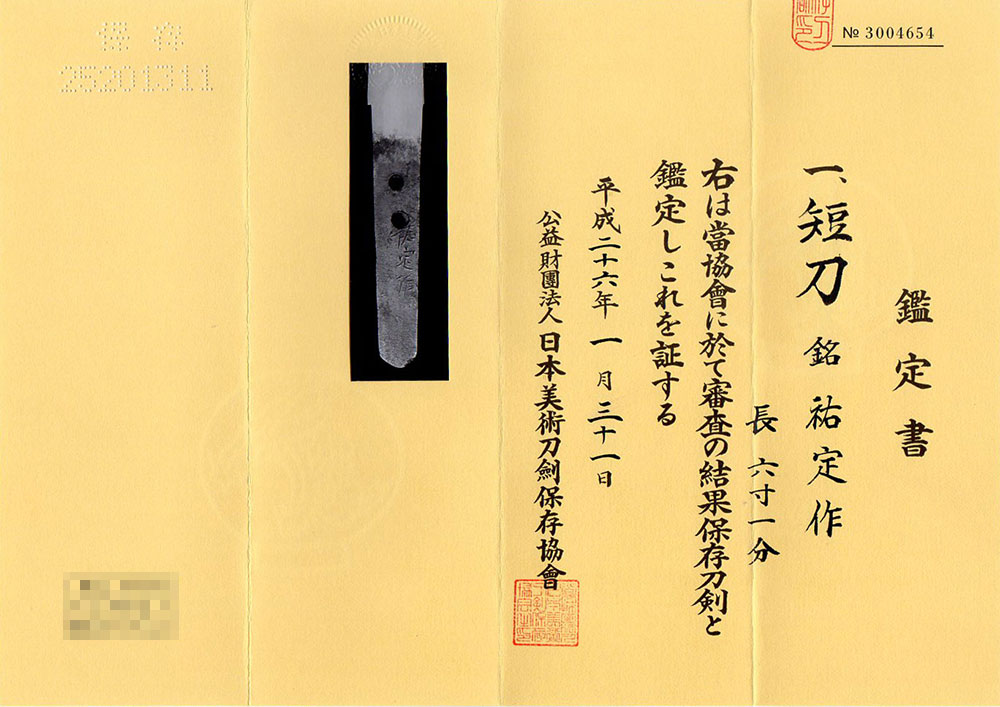 № 3004654
鑑定書
一、短刀 銘 祐定作
長 六寸一分
右は當協會に於て審査の結果保存刀剣と
鑑定しこれを証する
平成二十六年一月三十一日
公益財團法人 日本美術刀劍保存協會
保存
25201311
祐定作